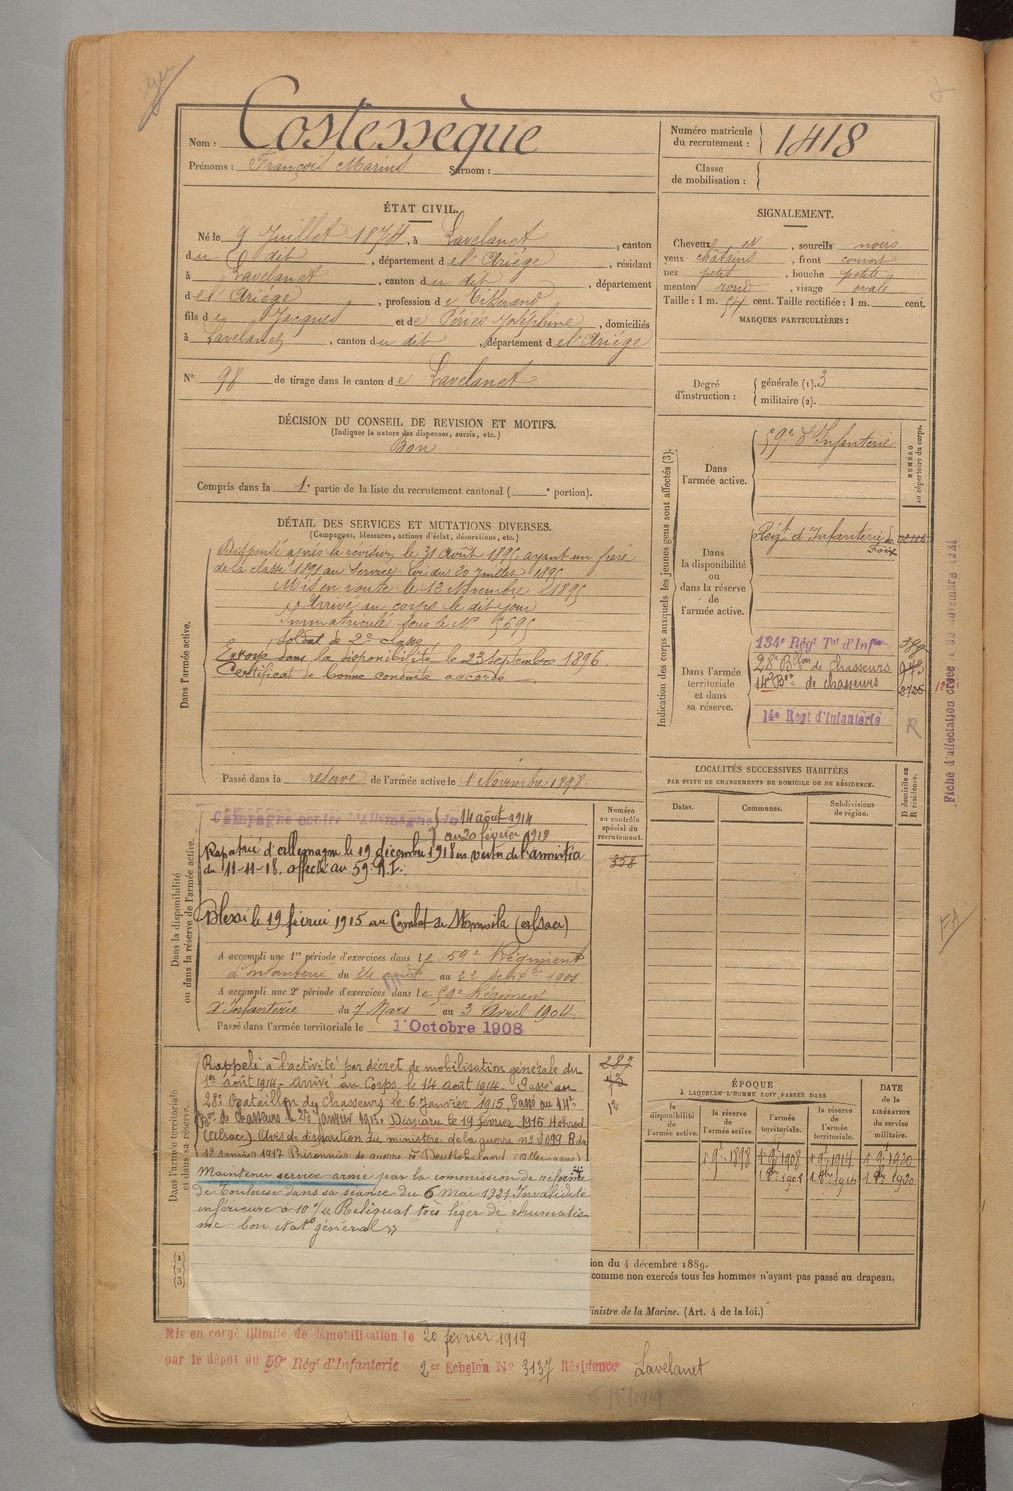 Nom : Costessèque
Prénoms : François Marius Surnom :
Numéro matricule du recrutement : 1418
Classe de mobilisation :
ÉTAT CIVIL.
Né le 9 Juillet 1874, à Lavelanet, canton
du dit, département de l'Ariége, résidant
à Lavelanet, canton du dit, département
de l'Ariége, profession de Tisserand
fils de Jacques et de Périés Joséphine, domiciliés
à Lavelanet, canton du dit, département de l'Ariége
N° 98 de tirage dans le canton de Lavelanet
SIGNALEMENT.
Cheveux et, sourcils noirs
yeux châtains, front couvert
nez petit, bouche petite
menton rond, visage ovale
Taille : 1 m. 54 cent. Taille rectifiée : 1 m. cent.
MARQUES PARTICULIÈRES :
Degré d'instruction : générale (1). 3
militaire (2).
DÉCISION DU CONSEIL DE REVISION ET MOTIFS.
(Indiquer la nature des dispenses, sursis, etc.)
Bon
Compris dans la 1e partie de la liste du recrutement cantonal ( e portion).
DÉTAIL DES SERVICES ET MUTATIONS DIVERSES.
(Campagnes, blessures, actions d'éclat, décorations, etc.)
Dans l'armée active.
Dispensé après la révision le 31 Août 1895 ayant un frère
de la classe 1891 au service. Loi du 20 Juillet 1895
Mis en route le 13 Novembre 1895
Arrivé au corps le dit jour
Immatriculé sous le N° 5695
Soldat de 2e classe
Envoyé dans la disponibilité le 23 septembre 1896.
Certificat de bonne conduite accordé
Passé dans la réserve de l'armée active le 1 Novembre 1898
Indication des corps auxquels les jeunes gens sont affectés (3).
NUMÉRO au répertoire du corps.
Dans l'armée active.
59e d'Infanterie
Dans la disponibilité ou dans la réserve de l'armée active.
Régt d'Infanterie de Foix
Dans l'armée territoriale et dans sa réserve.
134e Régt Tal d'Infie
28e Bon de Chasseurs
14e Bon de chasseurs 2725
14e Regt d'Infanterie
R
Fiche d'affectation créée le 30 novembre 1921
LOCALITÉS SUCCESSIVES HABITÉES
PAR SUITE DE CHANGEMENTS DE DOMICILE OU DE RÉSIDENCE.
Dates. Communes. Subdivisions de région. D domicile ou R résidence.
Dans la disponibilité ou dans la réserve de l'armée active.
Numéro au contrôle spécial du recrutement.
358
Campagne contre l'Allemagne du 14 août 1914
au 20 février 1919
Rapatrié d'allemagne le 19 décembre 1918 en vertu de l'armistice
du 11-11-18. affecté au 59e R.I.
Blessé le 19 février 1915 au Combat de (Alsace)
A accompli une 1re période d'exercices dans le 59e Régiment
d'Infanterie du 26 août au 22 septbre 1901
A accompli une 2e période d'exercices dans le 59e Régiment
d'Infanterie du 7 Mars au 3 Avril 1904.
Passé dans l'armée territoriale le 1er Octobre 1908
Dans l'armée territoriale et dans sa réserve.
Rappelé à l'activité par décret de mobilisation générale du
1er août 1914. Arrivé au Corps le 14 août 1914. Passé au
28e Bataillon de Chasseurs le 6 Janvier 1915, Passé au 14e
Bon de Chasseurs le 25 Janvier 1915. Disparu le 19 février 1915 Hohrod
(Alsace). Avis de disparition du ministère de la guerre n° 3,099 B du
1er janvier 1917 Prisonnier de guerre à (Allemagne)
Maintenu service armé par la commission de réforme
de Toulouse dans sa séance du 6 Mai 1921 Invalidité
inférieure à 10 % Reliquat très léger de rhumatis
me bon état général »
ÉPOQUE
À LAQUELLE L'HOMME DOIT PASSER DANS
la disponibilité de l'armée active. la réserve de l'armée active. l'armée territoriale. la réserve de l'armée territoriale.
DATE de la LIBÉRATION DU service militaire.
(1)
(2)
(3)
ion du 4 décembre 1889.
comme non exercés tous les hommes n'ayant pas passé au drapeau.
inistre de la Marine. (Art. 4 de la loi.)
Mis en congé illimité de démobilisation le 20 février 1919
par le dépôt du 59e Régt d'Infanterie 2me Echelon N° 3137 Résidence Lavelanet